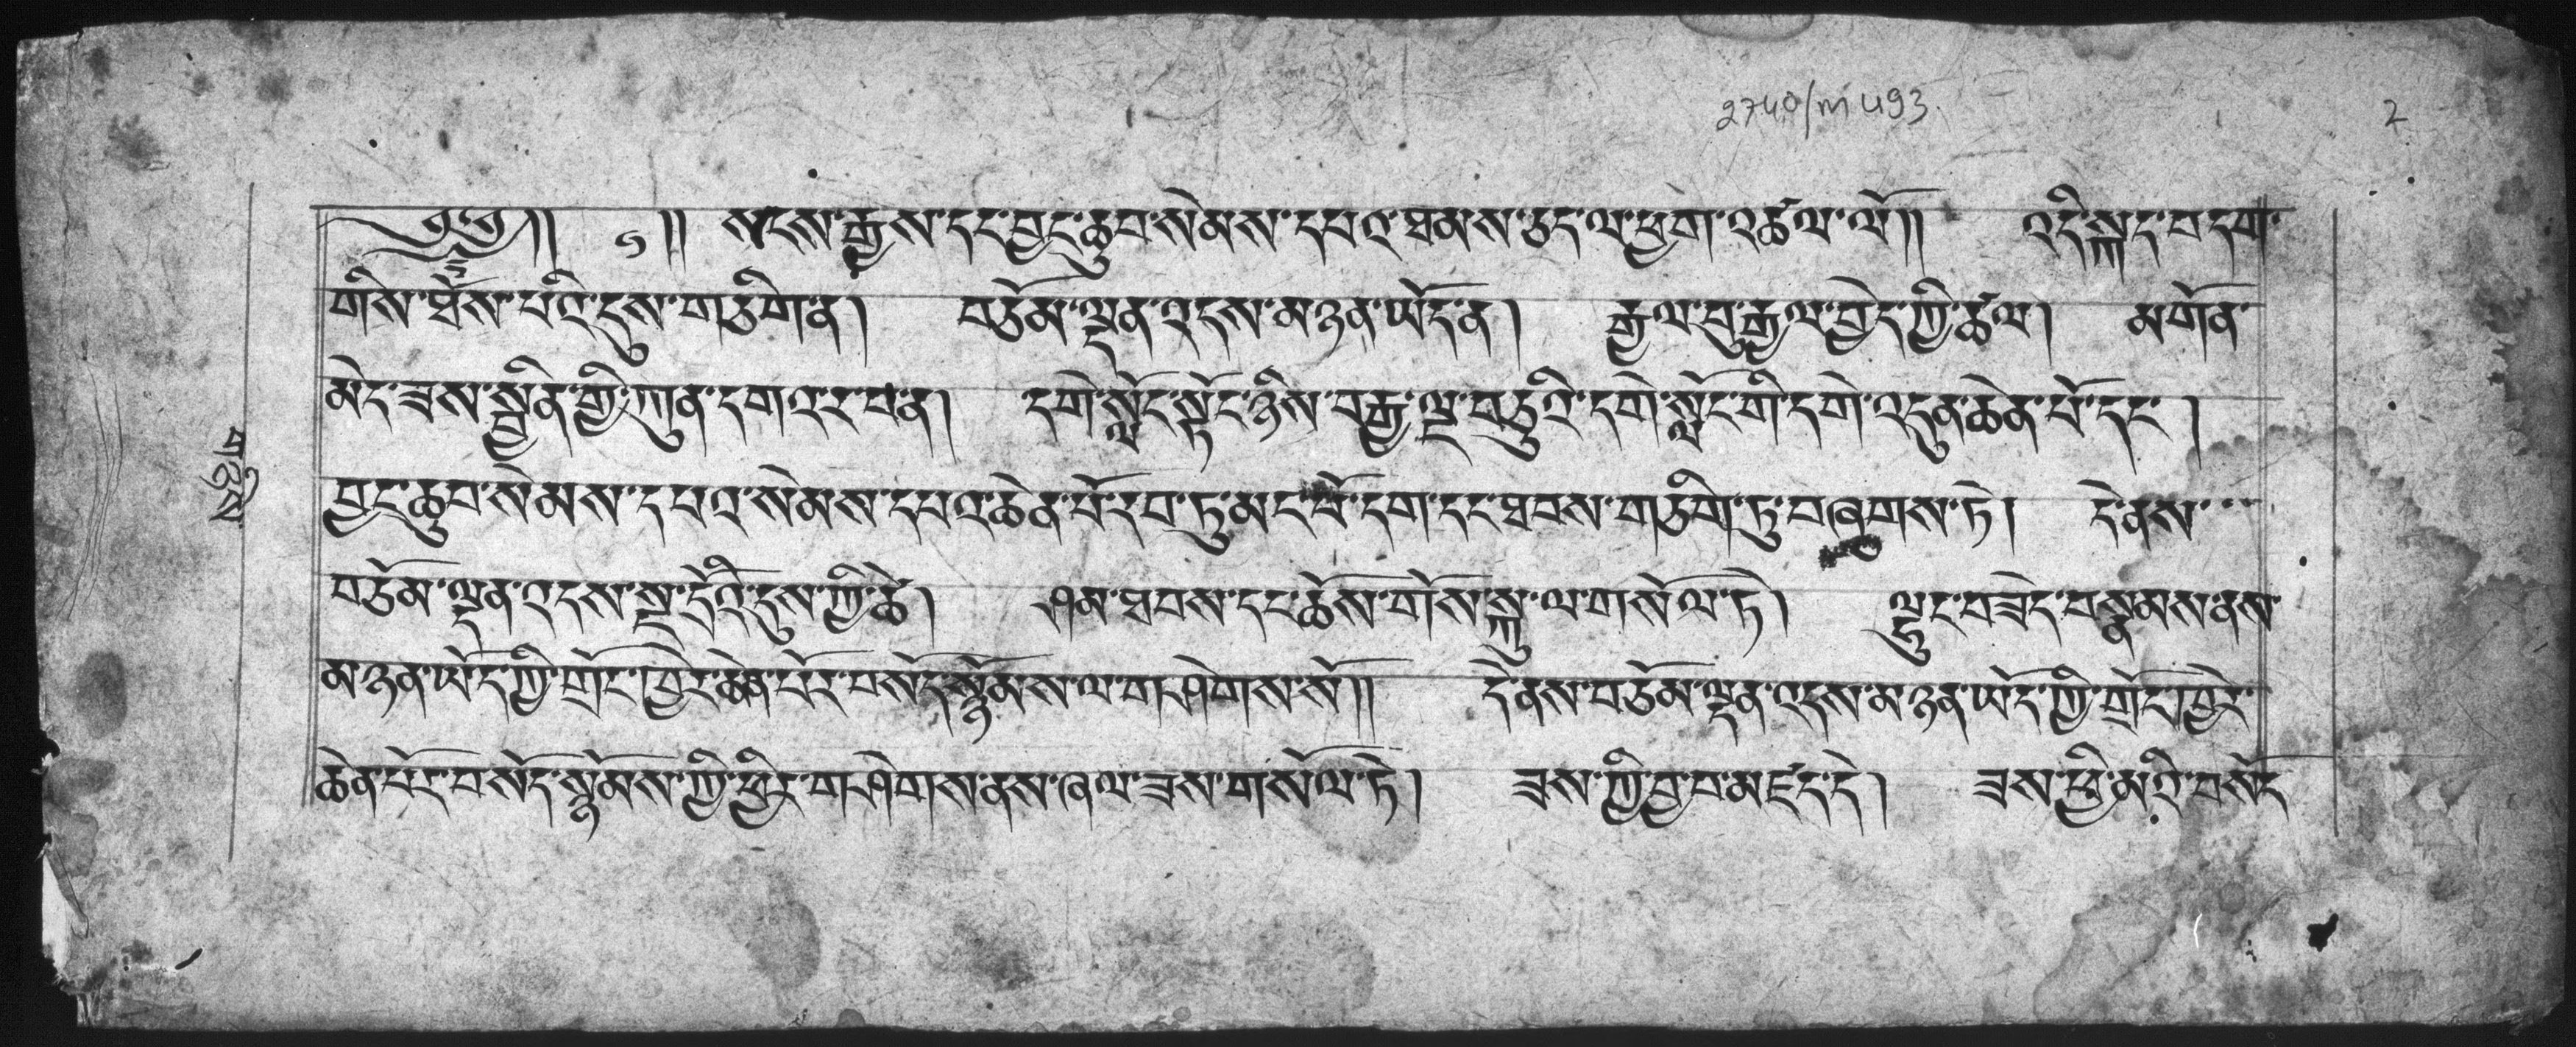 2740/m493
2
༄༅།། ༡ །། སངས་རྒྱས་དང་བྱང་ཆུབ་སེམས་དཔའ་ཐམས་ཅད་ལ་ཕྱག་འཚལ་ལོ།། འདི་སྐད་བདག་
གིས་ཐོས་པའི་དུས་གཅིག་ན། བཅོམ་ལྡན་འདས་མཉན་ཡོད་ན། རྒྱལ་བུ་རྒྱལ་བྱེད་ཀྱི་ཚལ། མགོན་
མེད་ཟས་སྦྱིན་གྱི་ཀུན་དགའ་ར་བ་ན། དགེ་སློང་སྟོང་ཉིས་བརྒྱ་ལྔ་བཅུའི་དགེ་སློང་གི་དགེ་འདུན་ཆེན་པོ་དང་།
བྱང་ཆུབ་སེམས་དཔའ་སེམས་དཔའ་ཆེན་པོ་རབ་ཏུ་མང་པོ་དག་དང་ཐབས་གཅིག་ཏུ་བཞུགས་ཏེ། དེ་ནས་
བཅོམ་ལྡན་འདས་སྔ་དྲོའི་དུས་ཀྱི་ཚེ། ཤམ་ཐབས་དང་ཆོས་གོས་སྐུ་ལ་གསོལ་ཏེ། ལྷུང་བཟེད་བསྣམས་ནས་
མཉན་ཡོད་ཀྱི་གྲོང་ཁྱེར་ཆེན་པོར་བསོད་སྙོམས་ལ་གཤེགས་སོ།། དེ་ནས་བཅོམ་ལྡན་འདས་མཉན་ཡོད་ཀྱི་གྲོང་ཁྱེར་
ཆེན་པོར་བསོད་སྙོམས་ཀྱི་ཕྱིར་གཤེགས་ནས་ཞལ་ཟས་གསོལ་ཏེ། ཟས་ཀྱི་བྱ་བ་མཛད་དེ། ཟས་ཕྱི་མའི་བསོད